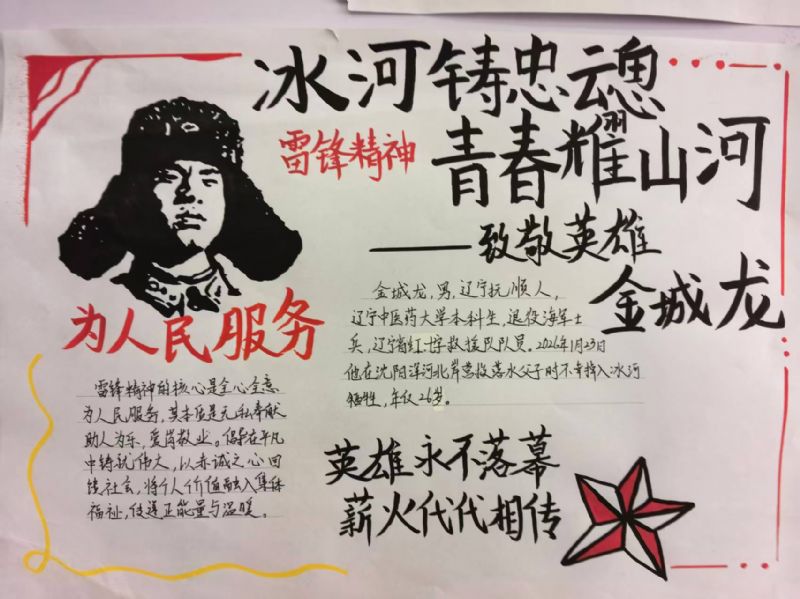 冰河铸忠魂
青春耀山河
雷锋精神
——致敬英雄
金城龙
为人民服务
金城龙，男，辽宁抚顺人，
辽宁中医药大学本科生，退役海军士
兵，辽宁省红十字救援队队员。2026年1月23日
他在沈阳浑河北岸营救落水父子时不幸掉入冰河
牺牲，年仅26岁。
雷锋精神的核心是全心全意
为人民服务，其本质是无私奉献
助人为乐，爱岗敬业。倡导在平凡
中铸就伟大，以赤诚之心回
馈社会，将个人价值融入集体
福祉，传递正能量与温暖。
英雄永不落幕
薪火代代相传